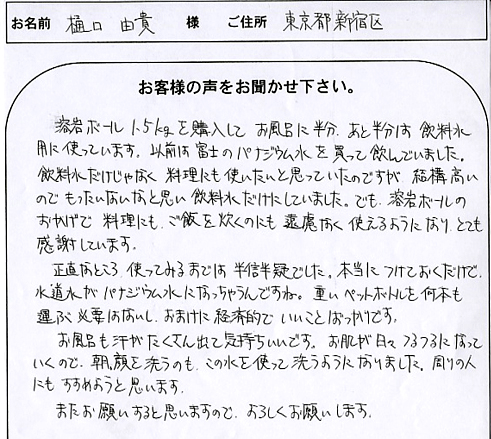 お名前 樋口 由貴 様 ご住所 東京都新宿区
お客様の声をお聞かせ下さい。
溶岩ボール 1.5kgを購入して お風呂に半分、あと半分は 飲料水
用に使っています。以前は富士のバナジウム水を買って飲んでいました。
飲料水だけじゃなく 料理にも使いたいと思っていたのですが、結構高い
のでもったいないなと思い 飲料水だけにしていました。でも、溶岩ボールの
おかげで 料理にも、ご飯を炊くのにも 遠慮なく 使えるようになり、とても
感謝しています。
正直なところ、使ってみるまでは 半信半疑でした。本当に つけておくだけで、
水道水が バナジウム水に なっちゃうんですね。重いペットボトルを何本も
運ぶ必要はないし、おまけに経済的で いいことばっかりです。
お風呂も汗がたくさん出て気持ちいいです。お肌が日々 つるつるになって
いくので、朝、顔を洗うのも、この水を使って 洗うようになりました。周りの人
にも すすめようと思います。
またお願いすると思いますので、よろしくお願いします。